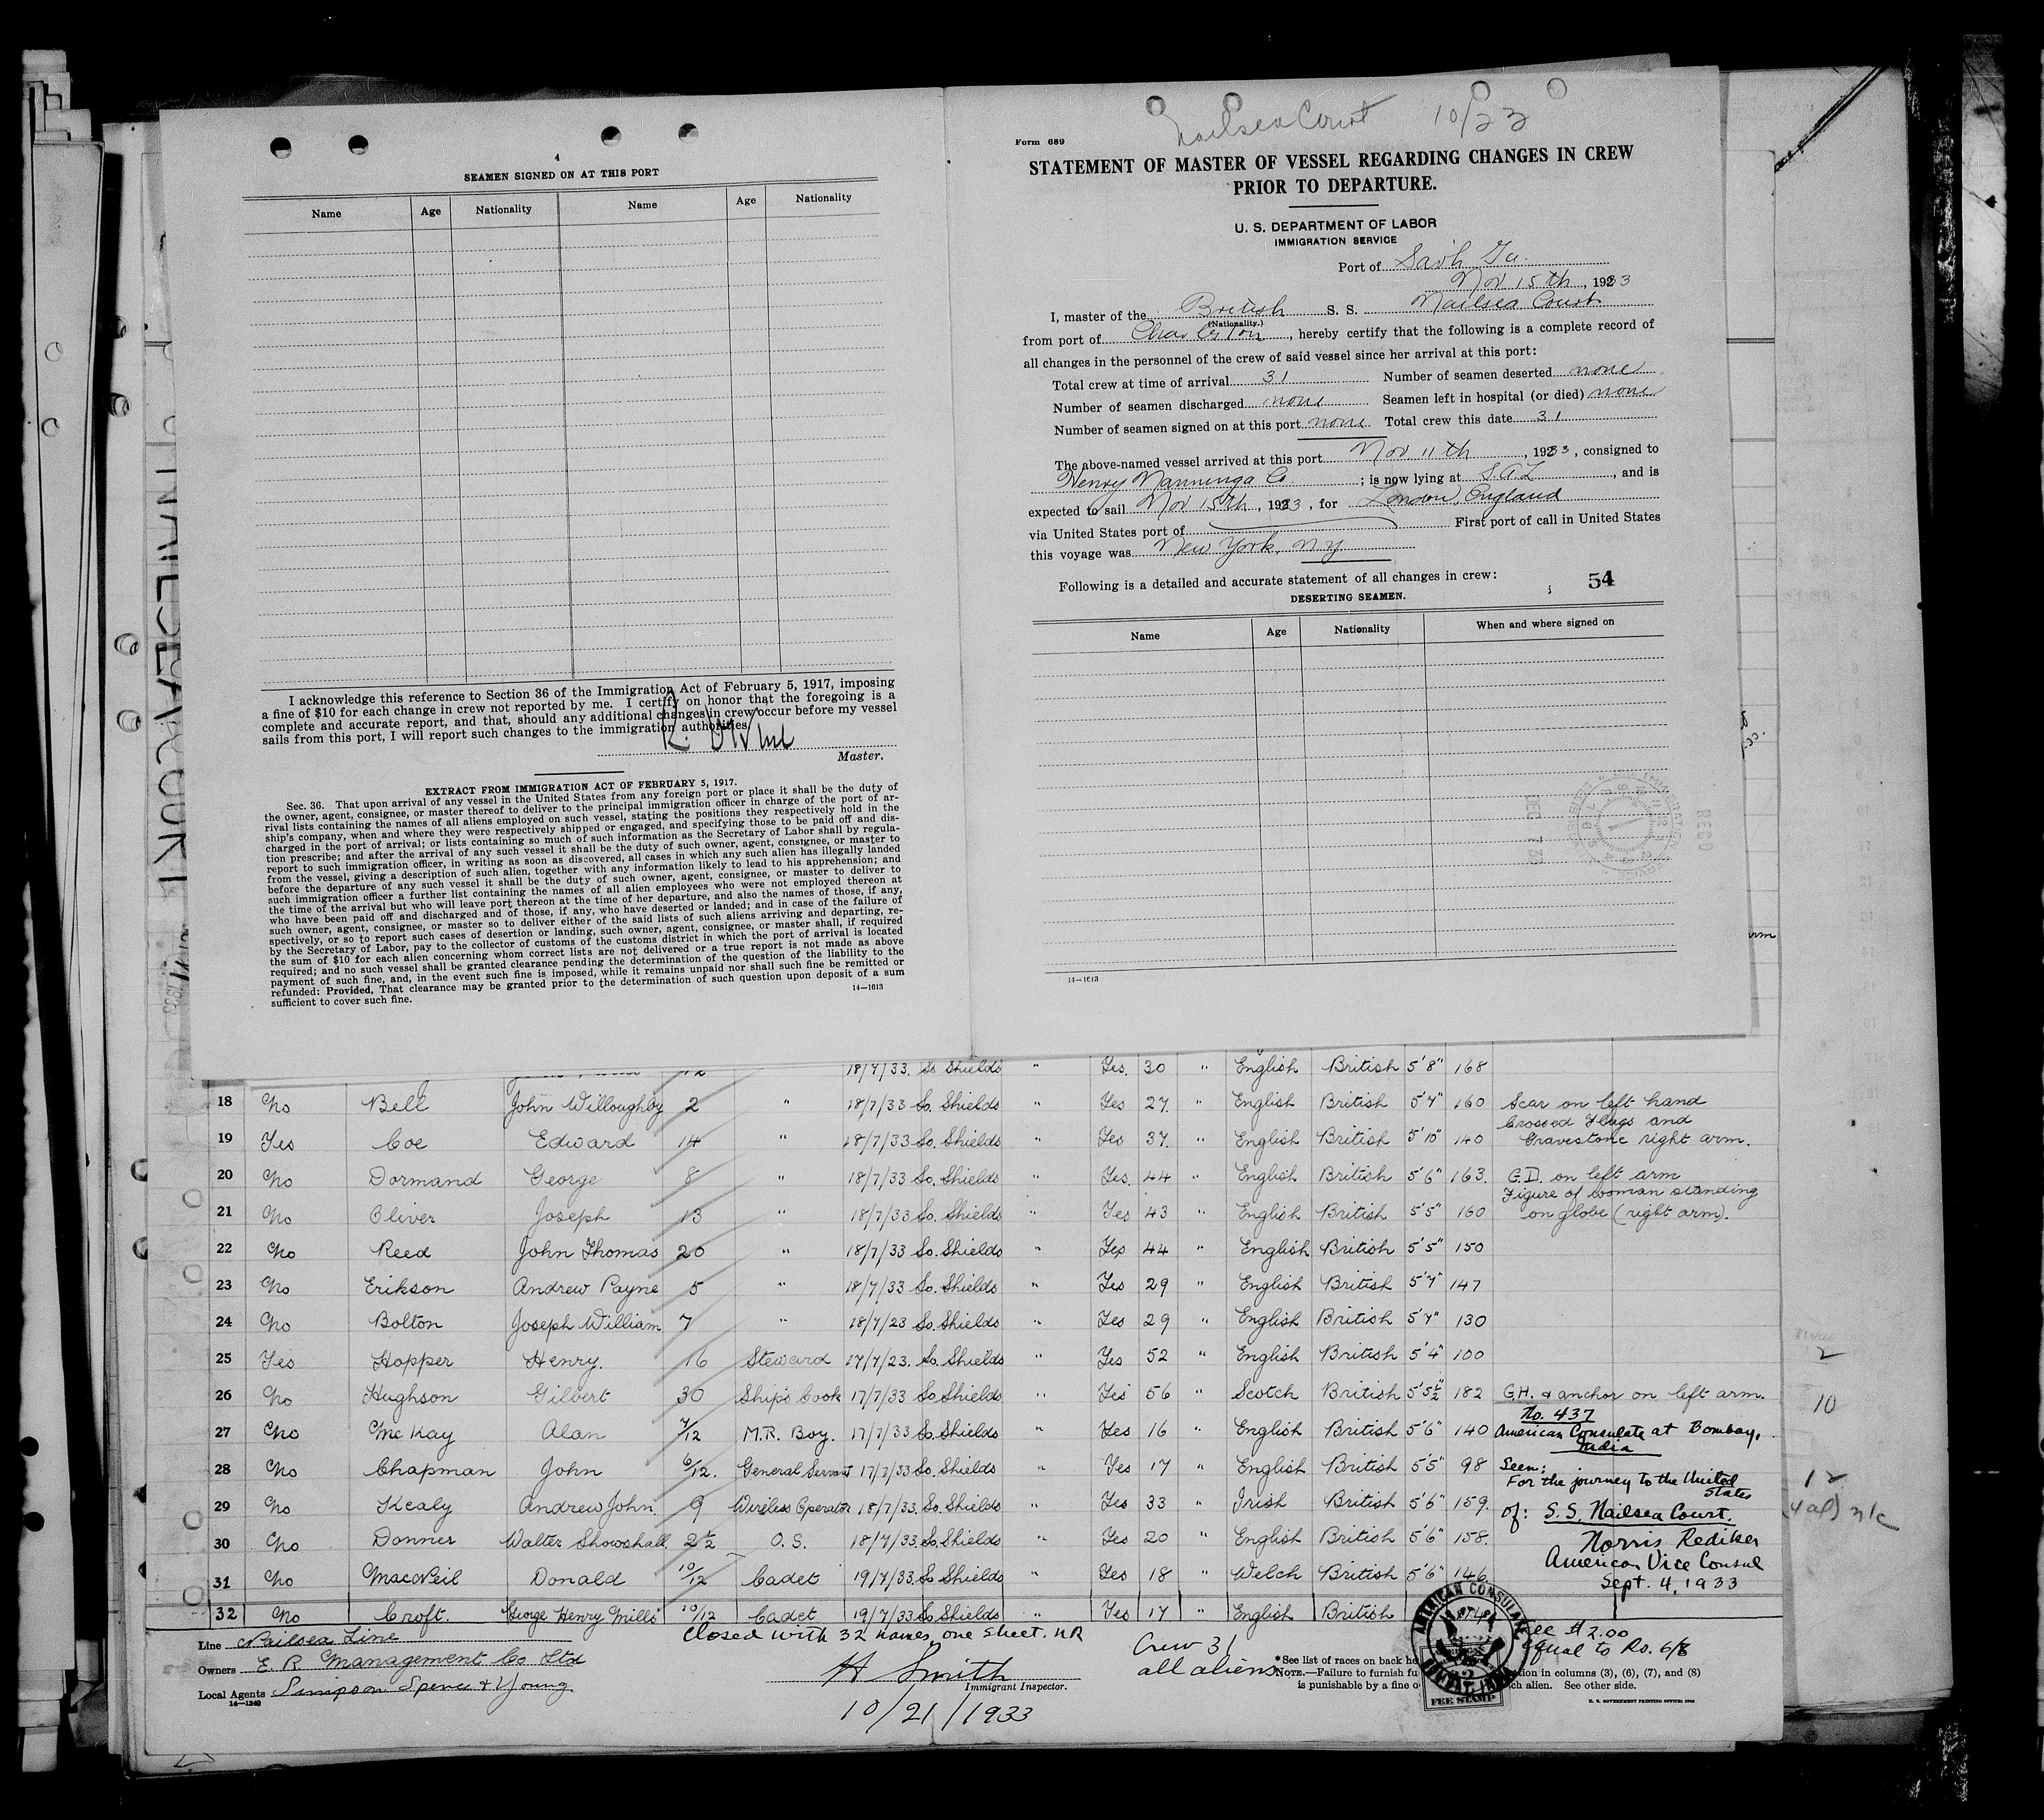 4
SEAMEN SIGNED ON AT THIS PORT
Name Age Nationality Name Age Nationality
I acknowledge this reference to Section 36 of the Immigration Act of February 5, 1917, imposing
a fine of $10 for each change in crew not reported by me. I certify on honor that the foregoing is a
complete and accurate report, and that, should any additional changes in crew occur before my vessel
sails from this port, I will report such changes to the immigration authorities.
Master.
EXTRACT FROM IMMIGRATION ACT OF FEBRUARY 5, 1917.
Sec. 36. That upon arrival of any vessel in the United States from any foreign port or place it shall be the duty of
the owner, agent, consignee, or master thereof to deliver to the principal immigration officer in charge of the port of ar-
rival lists containing the names of all aliens employed on such vessel, stating the positions they respectively hold in the
ship's company, when and where they were respectively shipped or engaged, and specifying those to be paid off and dis-
charged in the port of arrival; or lists containing so much of such information as the Secretary of Labor shall by regula-
tion prescribe; and after the arrival of any such vessel it shall be the duty of such owner, agent, consignee, or master to
report to such immigration officer, in writing as soon as discovered, all cases in which any such alien has illegally landed
from the vessel, giving a description of such alien, together with any information likely to lead to his apprehension; and
before the departure of any such vessel it shall be the duty of such owner, agent, consignee, or master to deliver to
such immigration officer a further list containing the names of all alien employees who were not employed thereon at
the time of the arrival but who will leave port thereon at the time of her departure, and also the names of those, if any,
who have been paid off and discharged and of those, if any, who have deserted or landed; and in case of the failure of
such owner, agent, consignee, or master so to deliver either of the said lists of such aliens arriving and departing, re-
spectively, or so to report such cases of desertion or landing, such owner, agent, consignee, or master shall, if required
by the Secretary of Labor, pay to the collector of customs of the customs district in which the port of arrival is located
the sum of $10 for each alien concerning whom correct lists are not delivered or a true report is not made as above
required; and no such vessel shall be granted clearance pending the determination of the question of the liability to the
payment of such fine, and, in the event such fine is imposed, while it remains unpaid nor shall such fine be remitted or
refunded: Provided, That clearance may be granted prior to the determination of such question upon deposit of a sum
sufficient to cover such fine.
14—1613
Nailsea Court 10/23
Form 689
STATEMENT OF MASTER OF VESSEL REGARDING CHANGES IN CREW
PRIOR TO DEPARTURE.
U. S. DEPARTMENT OF LABOR
IMMIGRATION SERVICE
Port of Savh Ga.
Nov 15th, 1933
I, master of the British S. S. Nailsea Court
(Nationality.)
from port of Charleston, hereby certify that the following is a complete record of
all changes in the personnel of the crew of said vessel since her arrival at this port:
Total crew at time of arrival 31 Number of seamen deserted none
Number of seamen discharged none Seamen left in hospital (or died) none
Number of seamen signed on at this port none Total crew this date 31
The above-named vessel arrived at this port Nov 11th, 1933, consigned to
Henry Nanninga Co.; is now lying at S.A.L, and is
expected to sail Nov 15th, 1933, for London, England
via United States port of First port of call in United States
this voyage was New York, N.Y
Following is a detailed and accurate statement of all changes in crew:
54
DESERTING SEAMEN.
Name Age Nationality When and where signed on
14—1613
RECD
DEC 7 33
NAILSEA COURT
18/7/33. So Shields " Yes. 30 " English British 5'8" 168
18 No Bell John Willoughby 2 " 18/7/33 So. Shields " Yes 27. " English British 5'7" 160 Scar on left hand
19 Yes Coe Edward 14 " 18/7/33 So. Shields " Yes 37. " English British 5'10" 140 Crossed Flags and
Gravestone right arm.
20 No Dormand George 8 " 18/7/33 So. Shields " Yes. 44 " English British 5'6" 163. G.D. on left arm
21 No Oliver Joseph 13 " 18/7/33 So. Shields " Yes 43 " English British 5'5" 160 Figure of woman standing
on globe (right arm).
22 No Reed John Thomas 20 " 18/7/33 So. Shields " Yes 44 " English British 5'5" 150
23 No Erikson Andrew Payne 5 " 18/7/33 So. Shields " Yes 29 " English British 5'7" 147
24 No Bolton Joseph William 7 " 18/7/23 So. Shields " Yes 29 " English British 5'7" 130
25 Yes Hopper Henry. 16 Steward 17/7/23. So. Shields " Yes 52 " English British 5'4" 100
2
26 No Hughson Gilbert 30 Ships Cook 17/7/33 So Shields " Yes 56 " Scotch British 5'5½" 182 G.H. & anchor on left arm.
10
No. 437
27 No McKay Alan 7/12 M.R. Boy. 17/7/33 So. Shields " Yes 16 " English British 5'6" 140 American Consulate at Bombay,
India
28 No Chapman John 6/12. General Servant 17/7/33 So. Shields " Yes 17 " English British 5'5" 98 Seen:
For the journey to the United
States
12
29 No Kealy Andrew John. 9 Wireless Operator 18/7/33. So. Shields " Yes 33 " Irish British 5'6" 159. of: S.S. Nailsea Court.
30 No Donner Walter Showshall. 2½ O.S. 18/7/33. So. Shields " Yes 20 " English British 5'6" 158. Norris Rediker
American Vice Consul
31 No MacNeil Donald 10/12 Cadet 19/7/33. So Shields " Yes 18 " Welch British 5'6" 146. Sept. 4, 1933
32 No Croft. George Henry Mills 10/12 Cadet 19/7/33 So Shields " Yes 17 " English British
Line Nailsea Line
Closed with 32 names, one sheet. NR
Crew 31
all aliens
Owners E. R. Management Co Ltd
Local Agents Simpson Spence & Young.
14—1240
H Smith
Immigrant Inspector.
10/21/1933
*See list of races on back he
NOTE.—Failure to furnish fu tion in columns (3), (6), (7), and (8)
is punishable by a fine o ch alien. See other side.
U. S. GOVERNMENT PRINTING OFFICE
AMERICAN CONSULATE
BOMBAY, INDIA
FEE STAMP
Fee $2.00
equal to Rs. 6/8